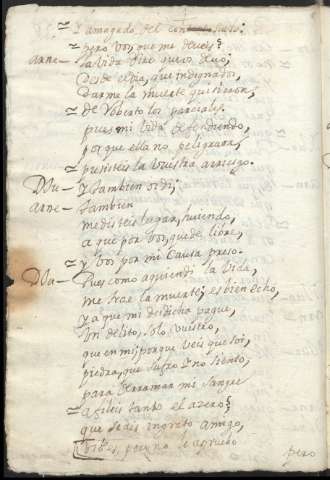 Y amagado del susto:
pero vos, que me deveis?
Arne— la vida dire que os devo,
desde el dia, que indignados,
darme la muerte quisieron,
de Roberto los parciales,
pues mi vida defendiendo,
porque ella no peligrara,
pusisteis la vuestra a riesgo.
Dou— Y tambien os di;
Arne— tambien
me disteis lugar, huiendo,
a que por vos, quede libre,
y vos por mi causa preso.
Dou— Pues como aquien di la vida,
me trae la muerte; es bien echo,
y a que mi desdicha pague,
un delito, solo vuestro,
que en mi, porque veis que soi,
piedra, que sufro y no siento,
para derramar mi sangre
afileis tanto el azero?
que sedis ingrato amigo,
pero no le apruebo
pero